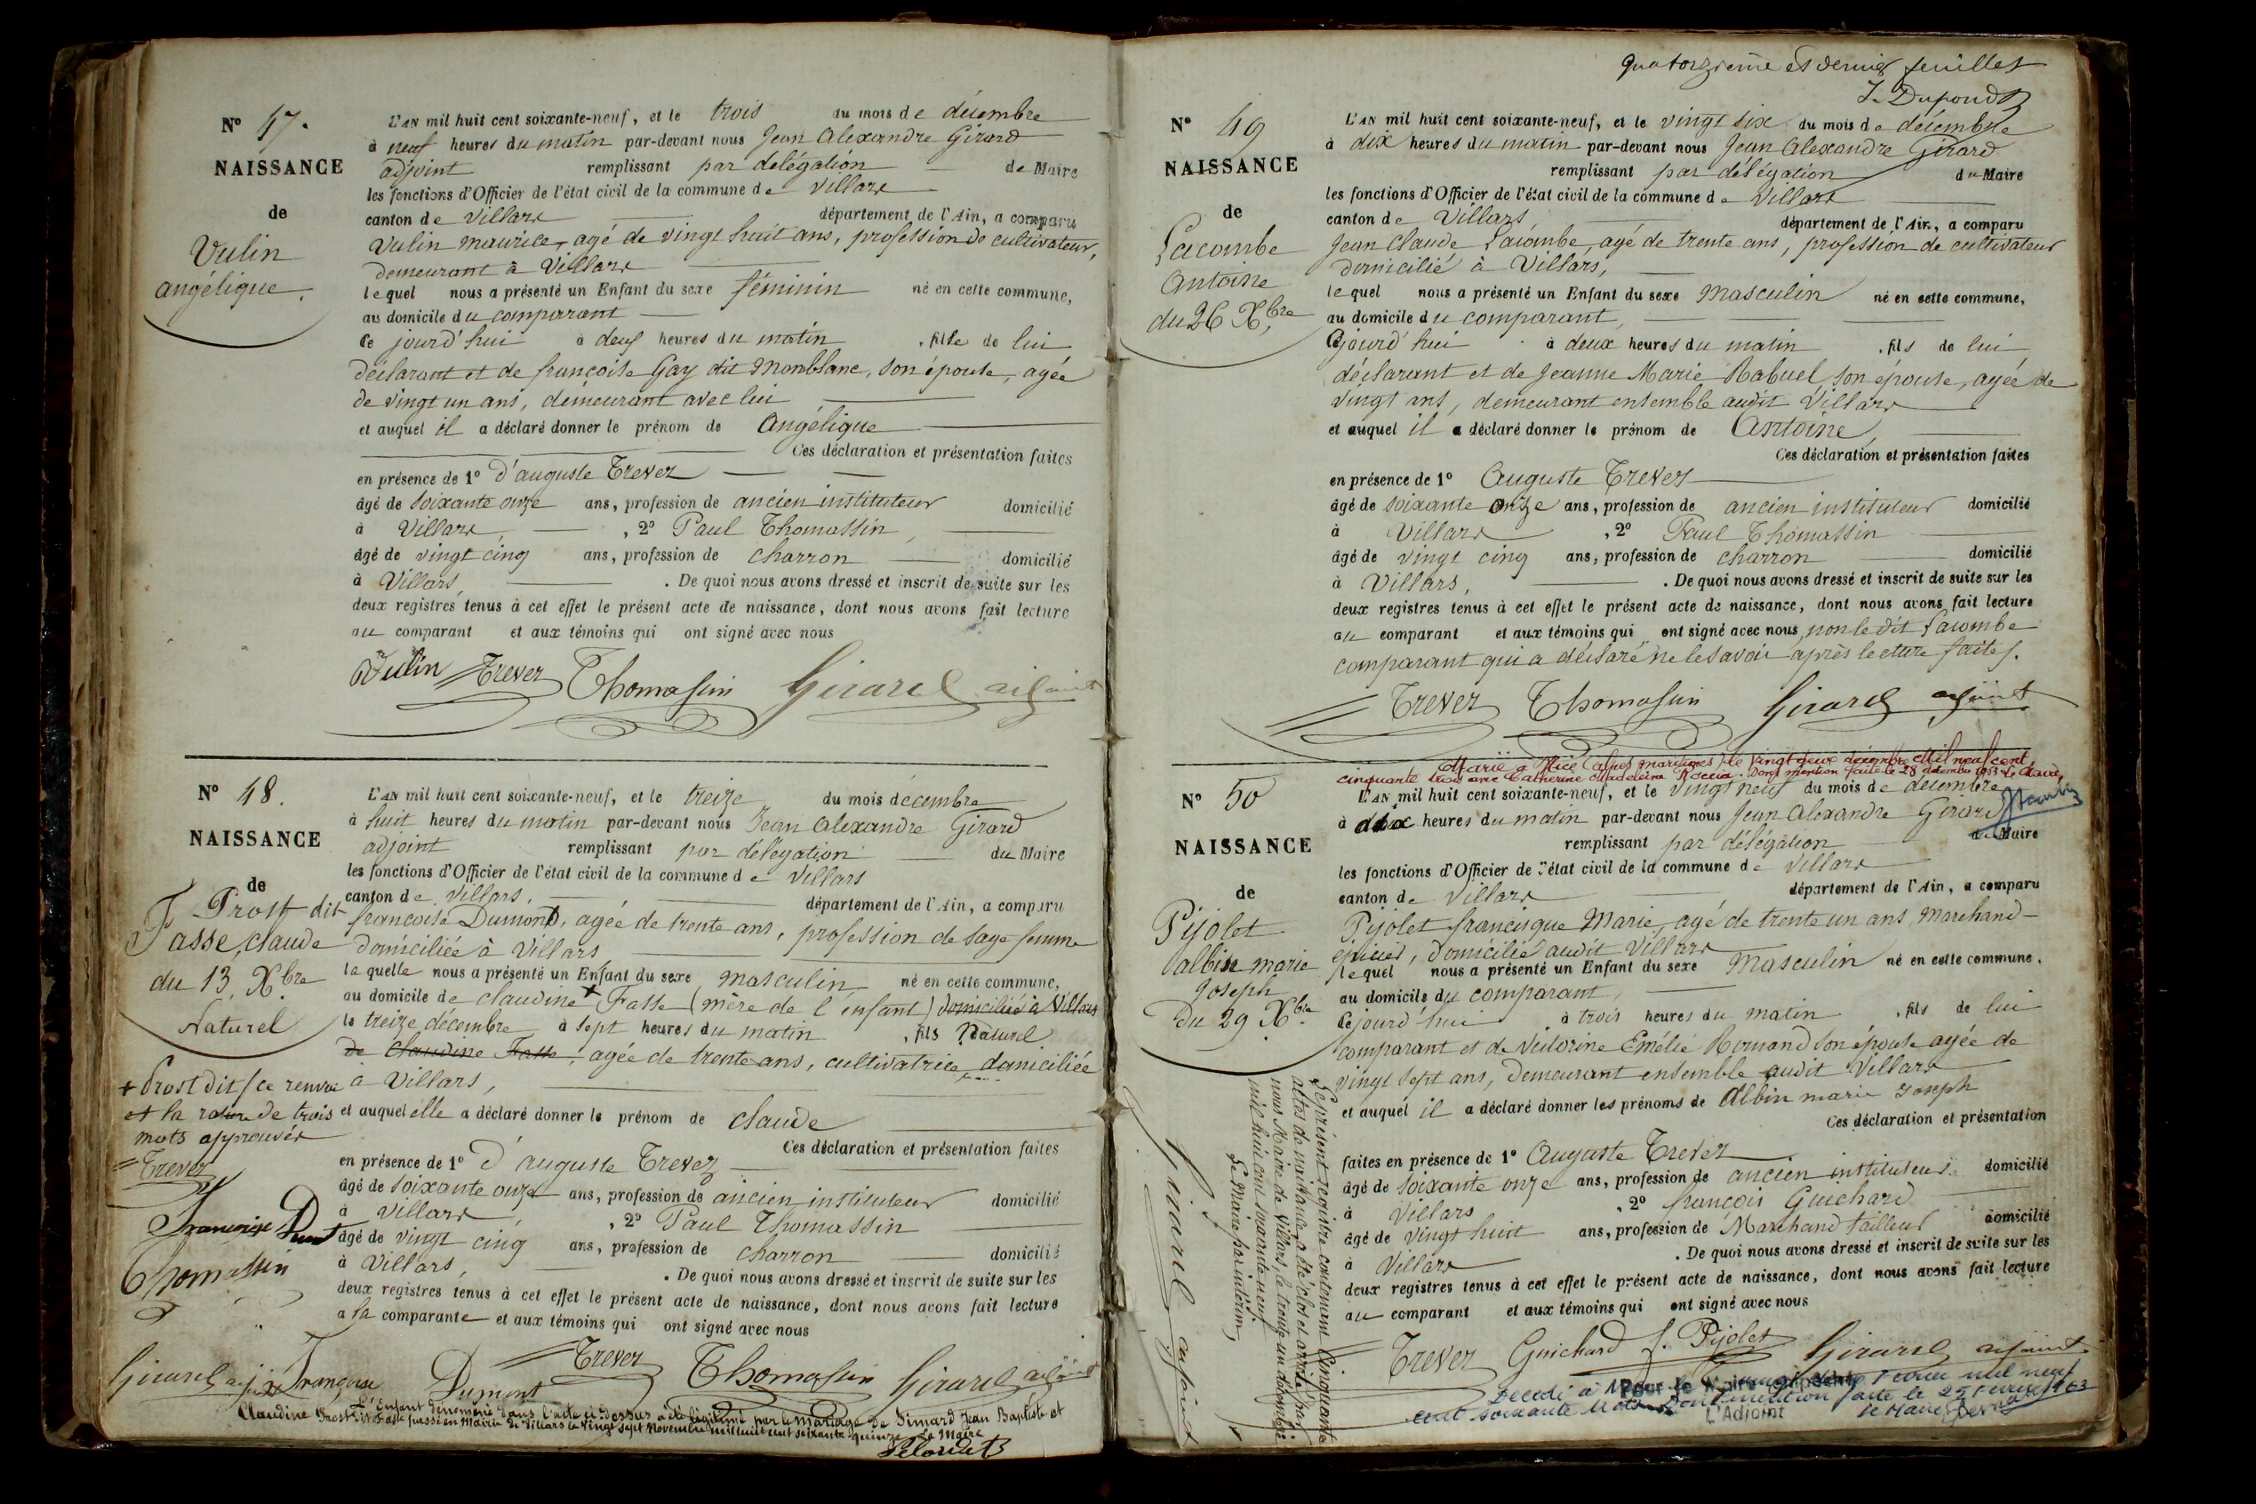 N° 47.
NAISSANCE
de
Vulin
angélique.
L'AN mil huit cent soixante-neuf, et le trois du mois de décembre
à neuf heures du matin par-devant nous Jean Alexandre Girard
adjoint remplissant par délégation de Maire
les fonctions d'Officier de l'état civil de la commune de Villars
canton de Villars département de l'Ain, a comparu
Vulin maurice, agé de vingt huit ans, profession de cultivateur,
demeurant à Villars
le quel nous a présenté un Enfant du sexe féminin né en cette commune,
au domicile du comparant
Ce jourd'hui à deux heures du matin, fille de lui
déclarant et de françoise Gay dit Monblanc, son épouse, agée
de vingt un ans, demeurant avec lui
et auquel il a déclaré donner le prénom de Angélique
Ces déclaration et présentation faites
en présence de 1° d'auguste Trever
âgé de soixante onze ans, profession de ancien instituteur domicilié
à Villars, 2° Paul Thomassin,
âgé de vingt cinq ans, profession de charron domicilié
à Villars, . De quoi nous avons dressé et inscrit de suite sur les
deux registres tenus à cet effet le présent acte de naissance, dont nous avons fait lecture
au comparant et aux témoins qui ont signé avec nous
Vulin Trever Thomassin Girard adjoint
N° 48.
NAISSANCE
de
Prost dit
Fasse, claude
du 13, Xbre
Naturel
+ Prost dit / ce renvoi
et la rature de trois
mots approuvés
Trever
Françoise Dumont
Thomassin
Girard adjoint
L'AN mil huit cent soixante-neuf, et le treize du mois décembre
à huit heures du matin par-devant nous Jean Alexandre Girard
adjoint remplissant par délégation du Maire
les fonctions d'Officier de l'état civil de la commune de Villars
canton de Villars, département de l'Ain, a comparu
françoise Dumont, agée de trente ans, profession de sage femme
domiciliée à Villars
la quelle nous a présenté un Enfant du sexe masculin né en cette commune,
au domicile de claudine + Fasse (mère de l'enfant) domiciliée à Villars
le treize décembre à sept heures du matin, fils naturel
de claudine Fasse, agée de trente ans, cultivatrice, domiciliée
à Villars,
et auquel elle a déclaré donner le prénom de claude
Ces déclaration et présentation faites
en présence de 1° d'auguste Trever
âgé de soixante onze ans, profession de ancien instituteur domicilié
à Villars, 2° Paul Thomassin
âgé de vingt cinq ans, profession de charron domicilié
à Villars, . De quoi nous avons dressé et inscrit de suite sur les
deux registres tenus à cet effet le présent acte de naissance, dont nous avons fait lecture
a la comparante et aux témoins qui ont signé avec nous
Françoise Dumont Trever Thomassin Girard adjoint
L'Enfant dénommé dans l'acte ci-dessus a été légitimé par le mariage de Simard Jean Baptiste et
Claudine Prost dit Fasse passé en Mairie de Villars le vingt sept Novembre mil huit cent soixante quinze. Le Maire
quatorzième et dernier feuillet
J. Dupond
N° 49
NAISSANCE
de
Lacombe
Antoine
du 26 Xbre
L'AN mil huit cent soixante-neuf, et le vingt six du mois de décembre
à dix heures du matin par-devant nous Jean Alexandre Girard
remplissant par délégation du Maire
les fonctions d'Officier de l'état civil de la commune de Villars
canton de Villars département de l'Ain, a comparu
Jean Claude Lacombe, agé de trente ans, profession de cultivateur
domicilié à Villars,
le quel nous a présenté un Enfant du sexe Masculin né en cette commune,
au domicile du comparant,
Cejourd'hui à deux heures du matin, fils de lui
déclarant et de Jeanne Marie Rabuel son épouse, agée de
vingt ans, demeurant ensemble audit Villars
et auquel il a déclaré donner le prénom de Antoine,
Ces déclaration et présentation faites
en présence de 1° Auguste Trever
âgé de soixante onze ans, profession de ancien instituteur domicilié
à Villars, 2° Paul Thomassin
âgé de vingt cinq ans, profession de charron domicilié
à Villars, . De quoi nous avons dressé et inscrit de suite sur les
deux registres tenus à cet effet le présent acte de naissance, dont nous avons fait lecture
au comparant et aux témoins qui ont signé avec nous, non le dit Lacombe
comparant qui a déclaré ne le savoir après lecture faite.
Trever Thomassin Girard adjoint
Marié à Nice (Alpes maritimes) le vingt deux décembre Mil neuf cent
cinquante trois avec Catherine Madeleine Roccia. Dont mention faite le 28 décembre 1953
N° 50
NAISSANCE
de
Pijolet
albin marie
Joseph
Du 29 Xbre
L'AN mil huit cent soixante-neuf, et le vingt neuf du mois de décembre
à dix heures du matin par-devant nous Jean Alexandre Girard
remplissant par délégation du Maire
les fonctions d'Officier de l'état civil de la commune de Villars
canton de Villars département de l'Ain, a comparu
Pijolet francisque Marie, agé de trente un ans, Marchand-
épicier, domicilié audit Villars
le quel nous a présenté un Enfant du sexe Masculin né en cette commune,
au domicile du comparant,
Cejourd'hui à trois heures du matin, fils de lui
comparant et de Victorine Emélie Romand son épouse agée de
vingt sept ans, demeurant ensemble audit Villars
et auquel il a déclaré donner les prénoms de Albin marie Joseph
Ces déclaration et présentation
faites en présence de 1° Auguste Trever
âgé de soixante onze ans, profession de ancien instituteur domicilié
à Villars, 2° françois Guichard
âgé de vingt huit ans, profession de Marchand tailleur domicilié
à Villars . De quoi nous avons dressé et inscrit de suite sur les
deux registres tenus à cet effet le présent acte de naissance, dont nous avons fait lecture
au comparant et aux témoins qui ont signé avec nous
Trever Guichard f. Pijolet Girard adjoint
Le présent registre contenant Cinquante
actes de naissance, a été clos et arrêté par
nous Maire de Villars, le trente un décembre
mil huit cent soixante neuf.
Le Maire par intérim,
Girard adjoint
Décédé à
février mil neuf
cent soixante trois. Dont mention faite le 25 février 1963
Pour le Maire
L'Adjoint